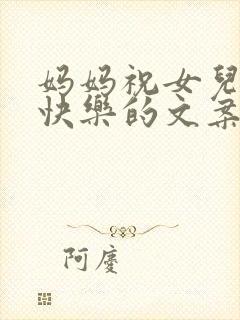 妈妈祝女兒
快樂的文案
阿慶